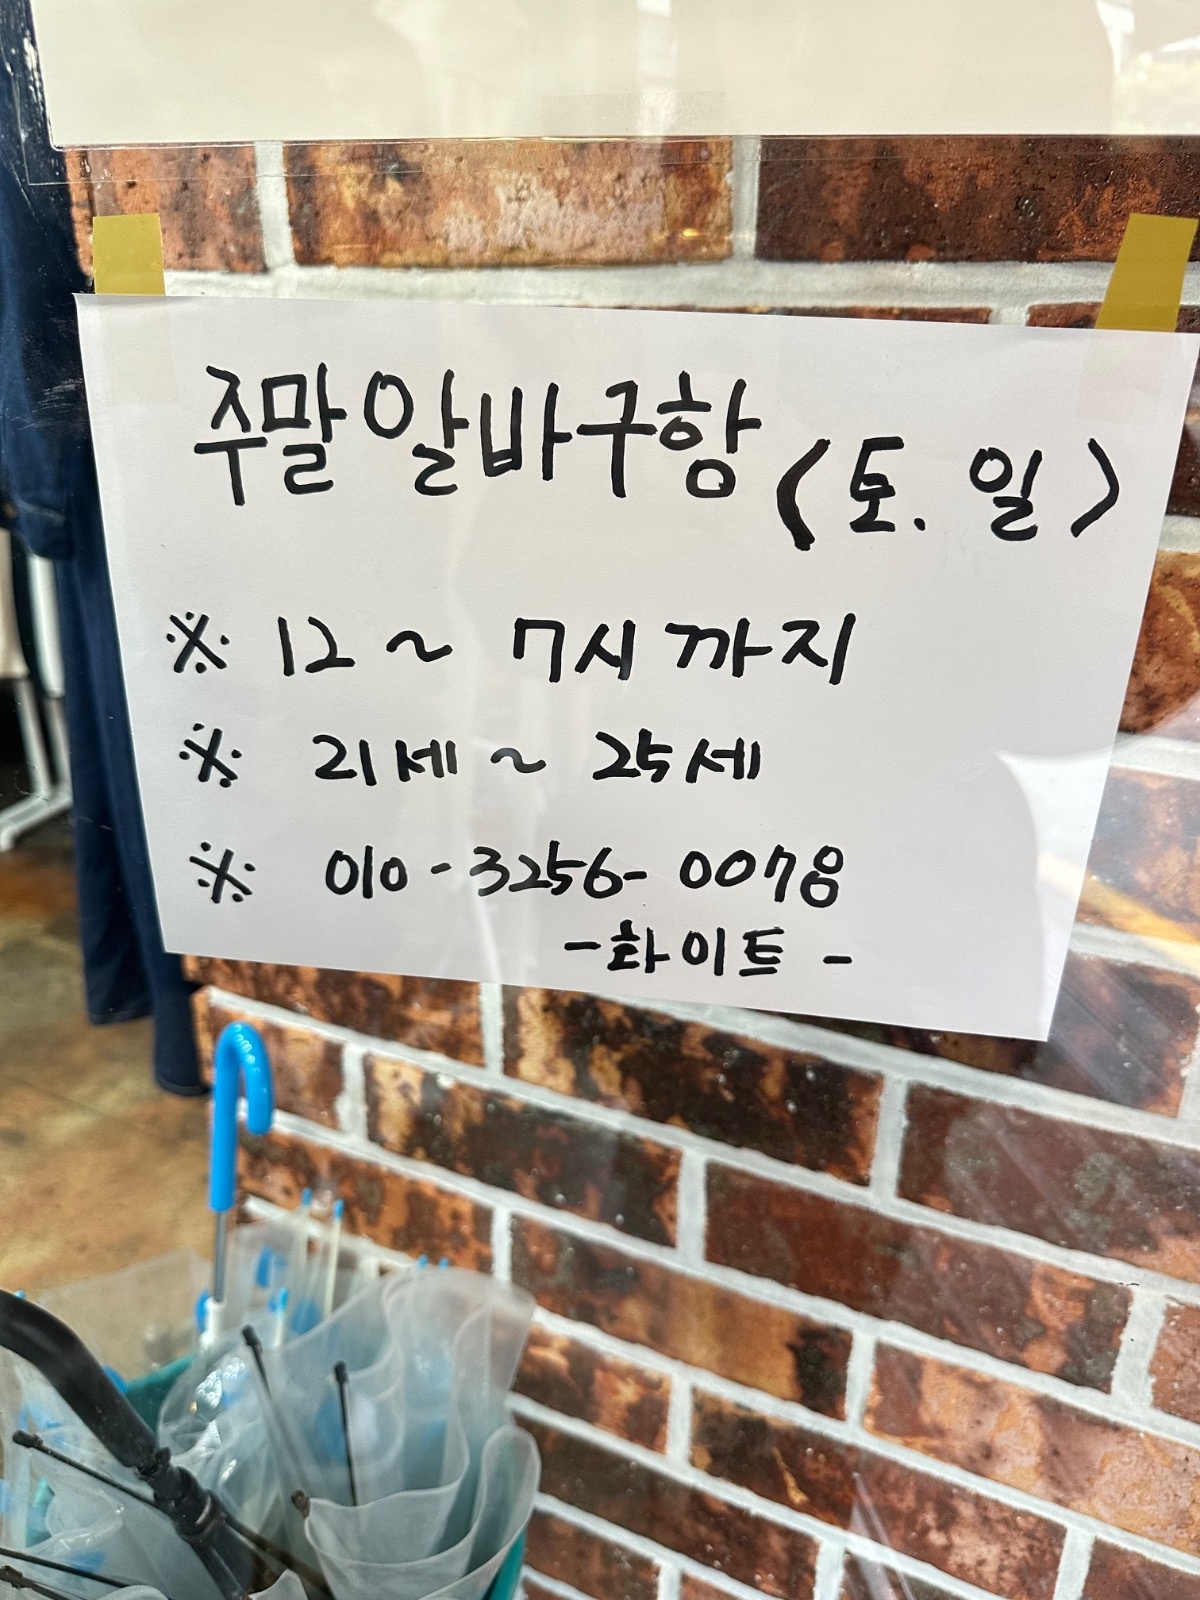 주말알바구함 (토.일)
※ 12 ~ 7시까지
※ 21세 ~ 25세
※ 010-3256-0078
-화이트-